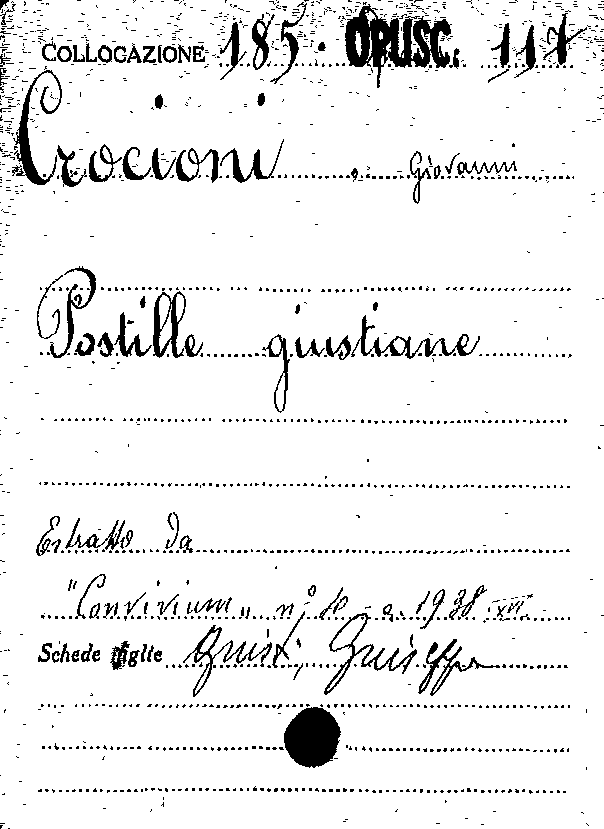 COLLOCAZIONE 185. OPUSC. 117
Crocioni . Giovanni
Postille giustiane
Estratto da
"Convivium" n° - a. 1938 XVI
Schede figlie Giusti, Giuseppe